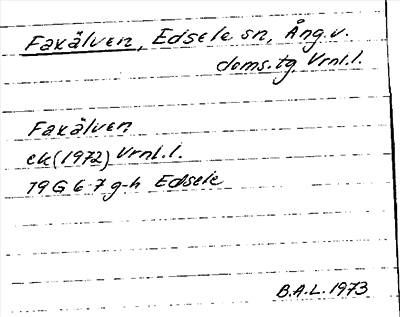 Faxälven, Edsele sn, Ång.v.
doms.tg Vrnl.l.
Faxälven
ek(1972) Vrnl.l.
19G 6-7 g-h Edsele
B.A.L. 1973